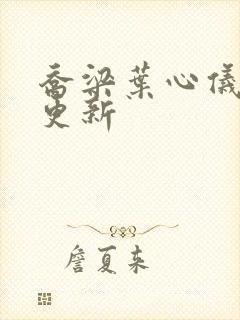 乔梁葉心儀
更新
詹夏来